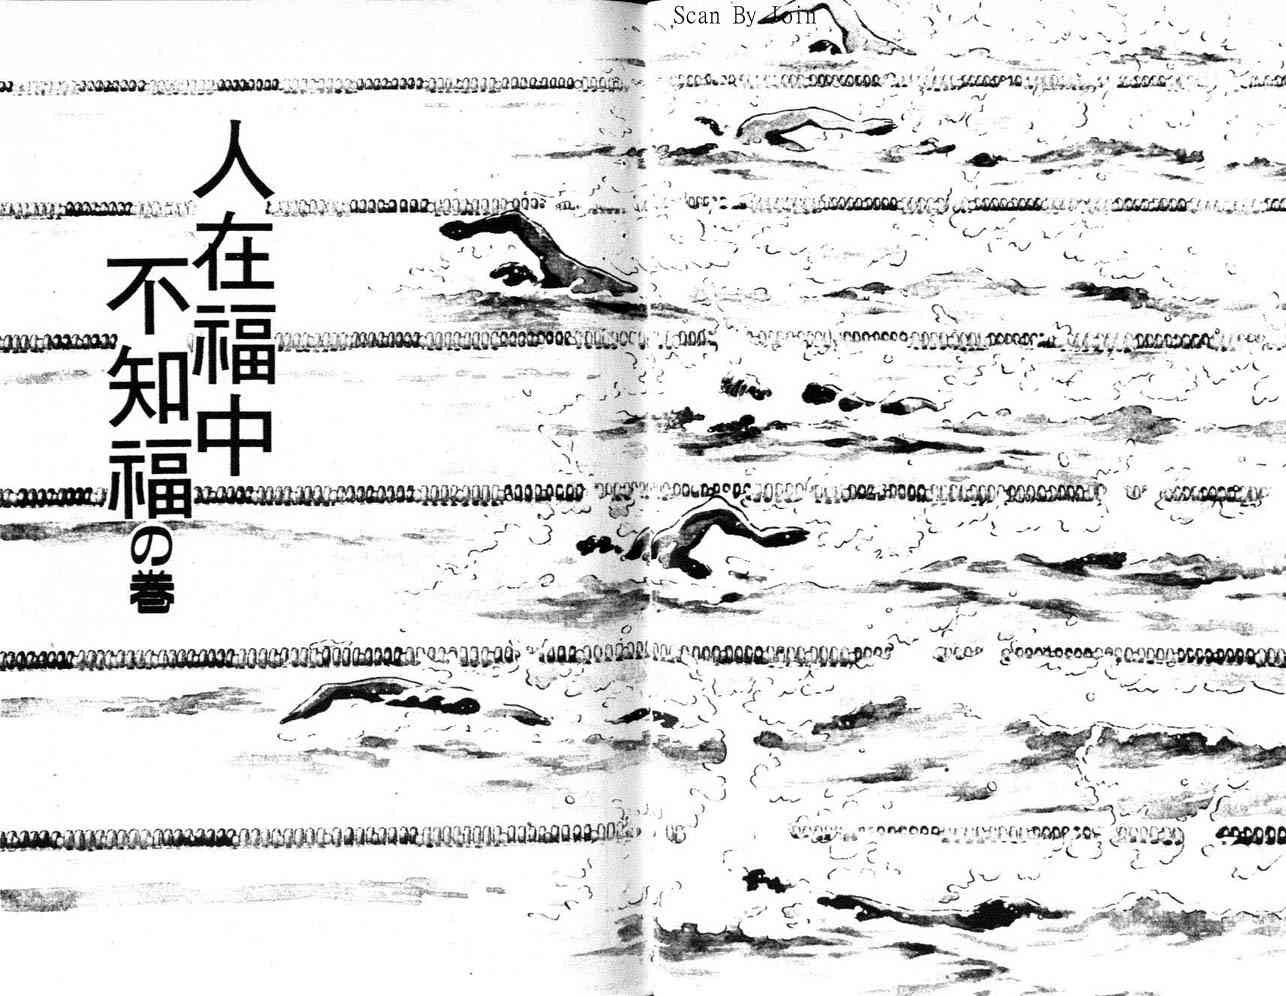 Scan By Join
人在福中
不知福の巻